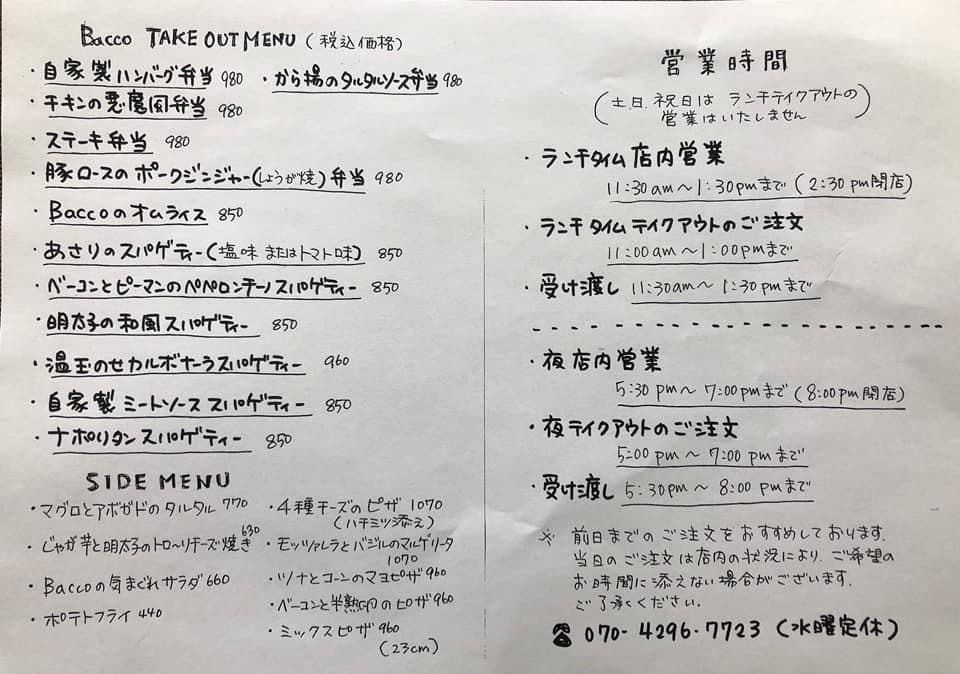 Bacco TAKE OUT MENU (税込価格)
・自家製ハンバーグ弁当 980 ・から揚のタルタルソース弁当 980
・チキンの悪魔風弁当 980
・ステーキ弁当 980
・豚ロースのポークジンジャー(しょうが焼)弁当 980
・Baccoのオムライス 850
・あさりのスパゲティー(塩味またはトマト味) 850
・ベーコンとピーマンのペペロンチーノスパゲティー 850
・明太子の和風スパゲティー 850
・温玉のせカルボナーラスパゲティー 960
・自家製ミートソーススパゲティー 850
・ナポリタンスパゲティー 850
SIDE MENU
・マグロとアボガドのタルタル 770
・じゃが芋と明太子のトロ〜リチーズ焼き 630
・Baccoの気まぐれサラダ 660
・ポテトフライ 440
・4種チーズのピザ 1070
(ハチミツ添え)
・モッツァレラとバジルのマルゲリータ
1070
・ツナとコーンのマヨピザ 960
・ベーコンと半熟卵のピザ 960
・ミックスピザ 960
(23cm)
営業時間
(土.日.祝日は ランチテイクアウトの
営業はいたしません)
・ランチタイム店内営業
11:30am〜1:30pmまで(2:30pm閉店)
・ランチタイムテイクアウトのご注文
11:00am〜1:00pmまで
・受け渡し 11:30am〜1:30pmまで
・夜店内営業
5:30pm〜7:00pmまで(8:00pm閉店)
・夜テイクアウトのご注文
5:00pm〜7:00pmまで
・受け渡し 5:30pm〜8:00pmまで
※ 前日までのご注文をおすすめしております.
当日のご注文は店内の状況により、ご希望の
お時間に添えない場合がございます.
ご了承ください.
☎ 070-4296-7723 (水曜定休)